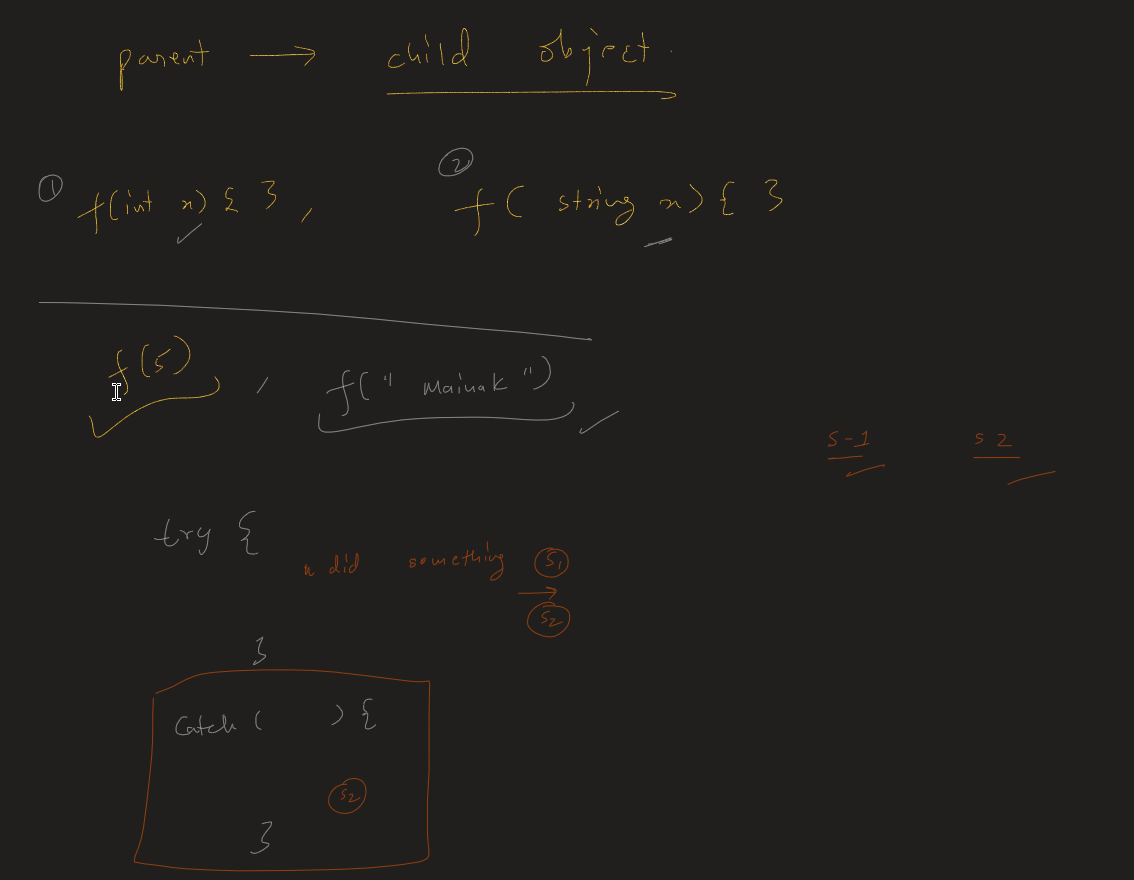 parent → child object
① ②
f(int x) { } , f( string x) { }
f(5) , f(" Mainak ")
S-1 S2
try {
x did something S1
→
S2
}
Catch ( ) {
S2
}